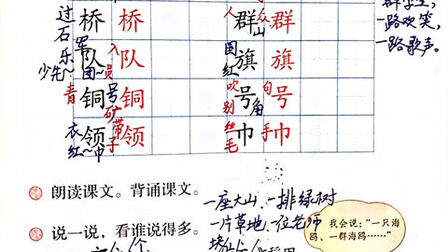 群学生，
一路欢笑，
一路歌声。
过 桥 桥 人 群 群
石 众
乐 军 山
少先~ 队 队 入 国 旗 旗
团~ 员 红
青 铜 铜 号 吹 号 号 句
矿 别 角
衣 领 领 带 丝 巾 巾 手
红~巾 子 毛
朗读课文。背诵课文。
一座大山、一排绿树
一片草地、一位老师
说一说，看谁说得多。
我会说："一只海
鸥、一群海鸥……"